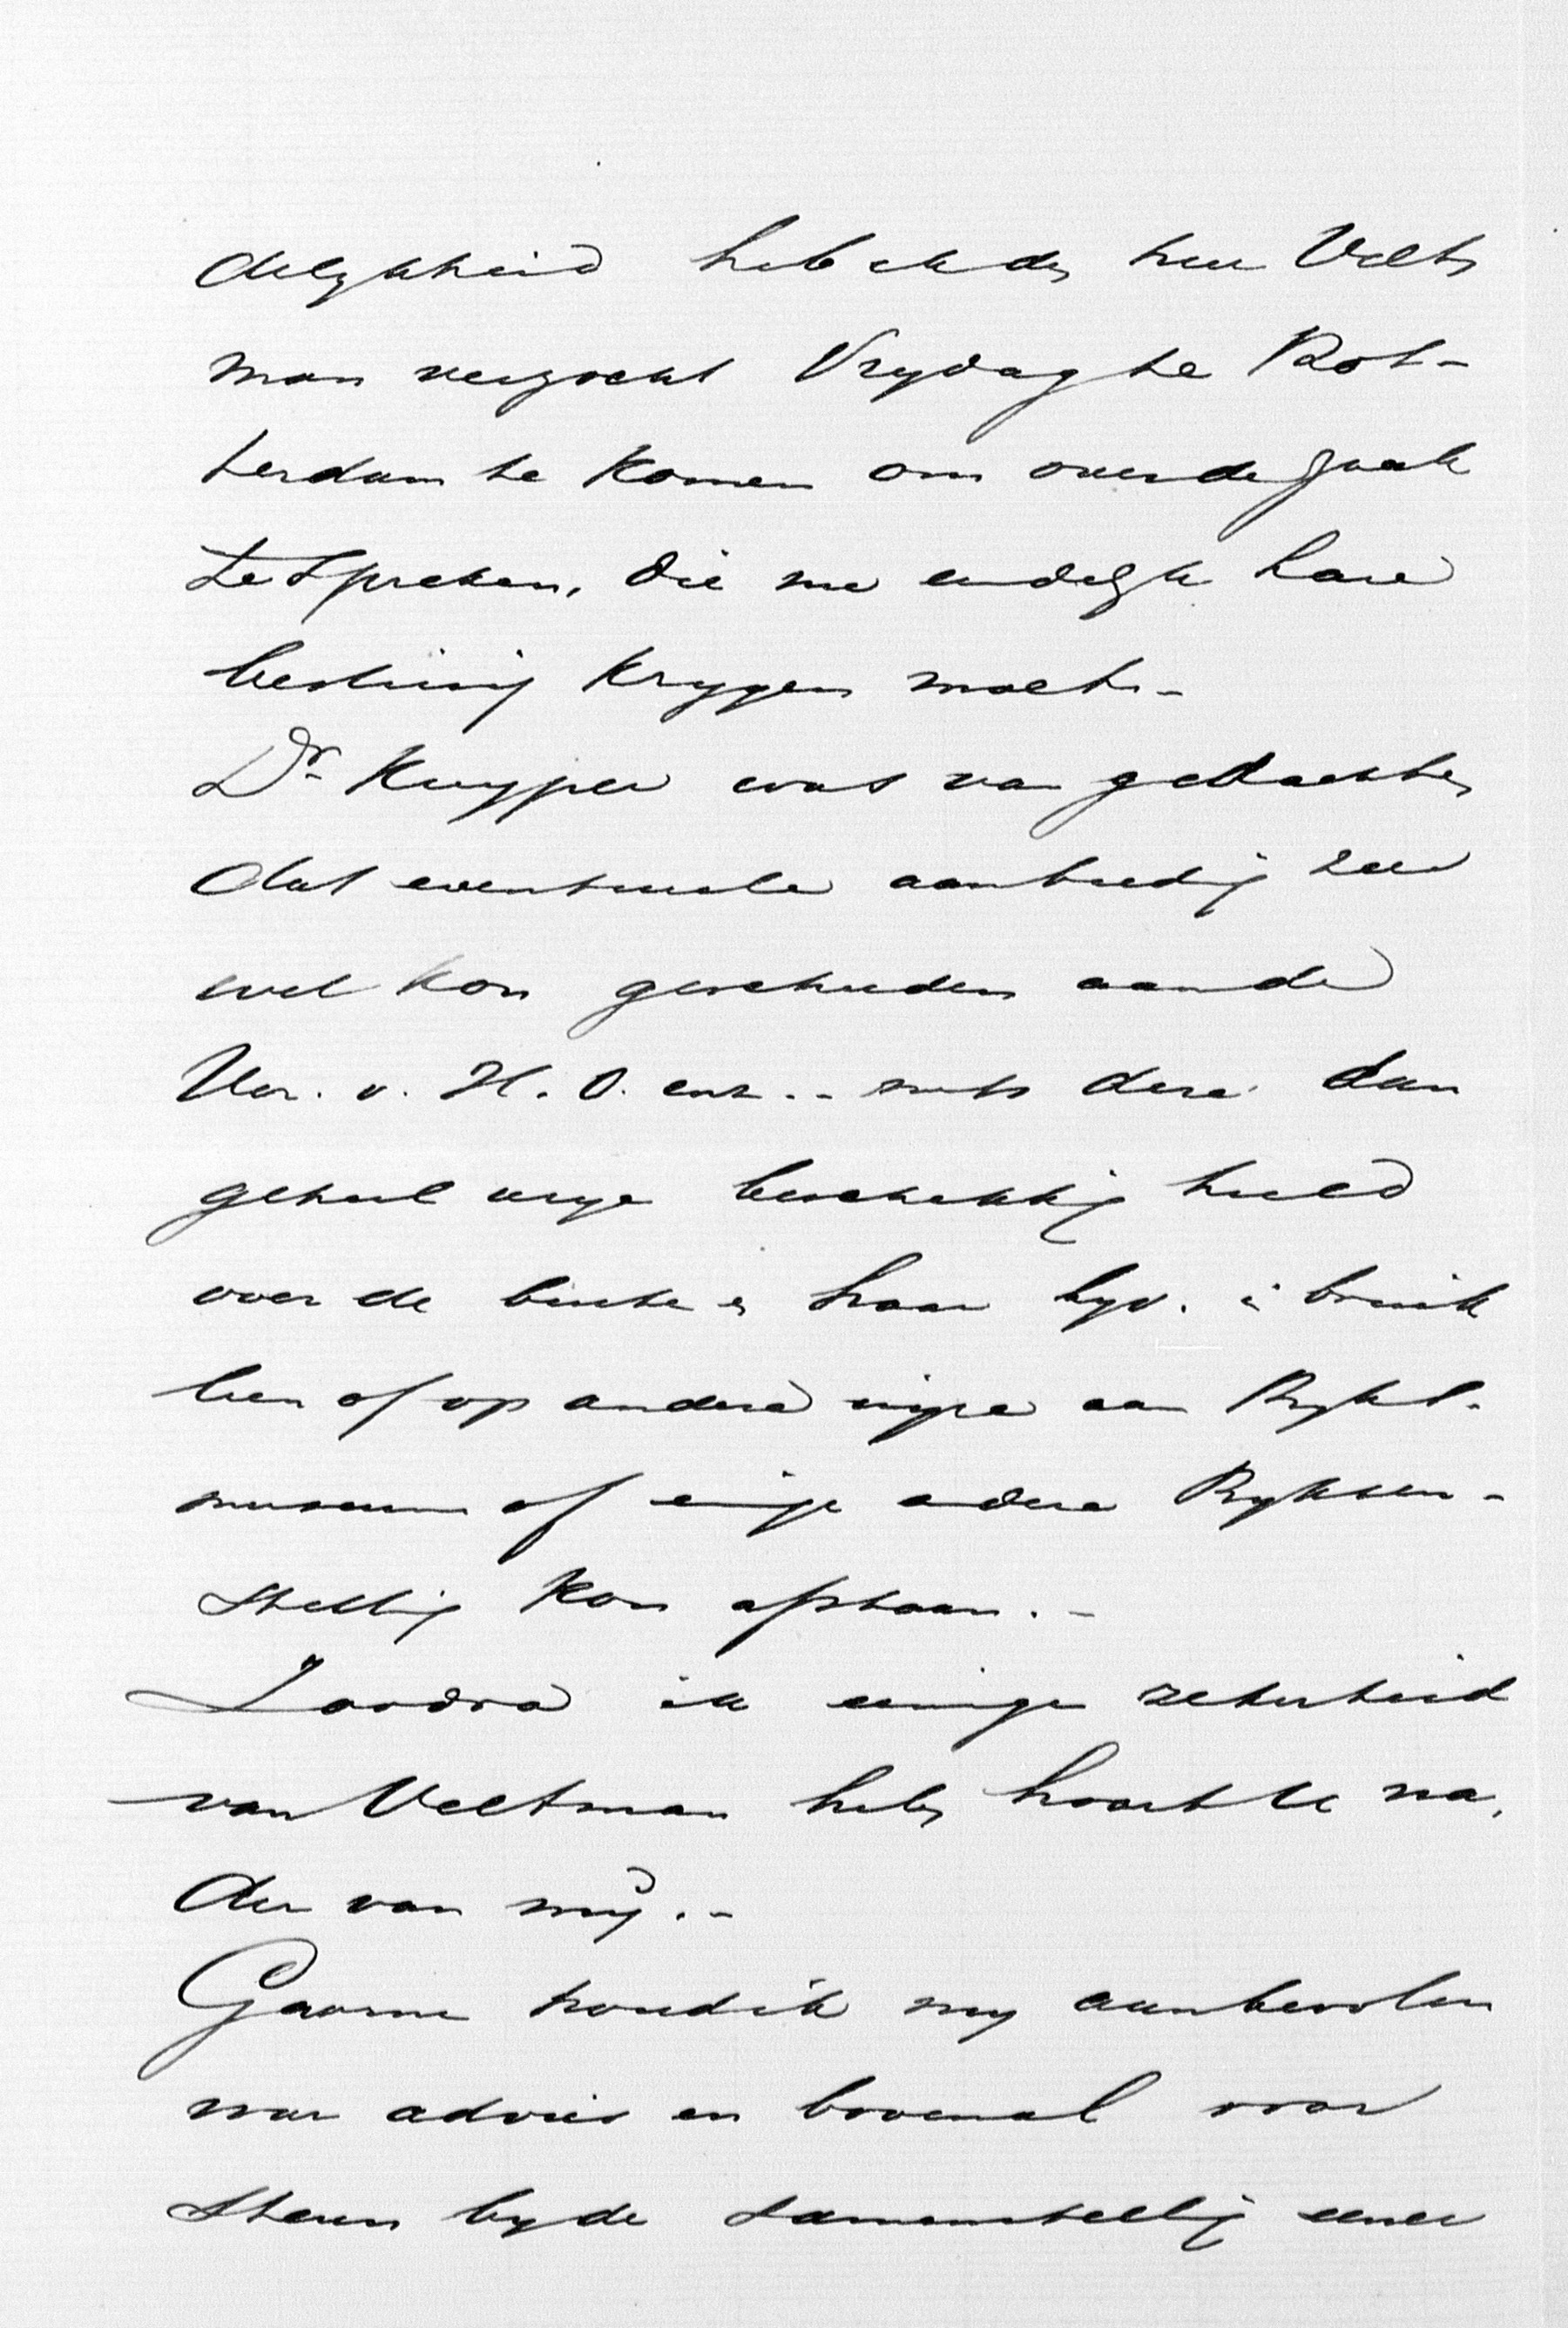 delykheid heb ik den heer Velt
man verzocht Vrydag te Rot-
terdam te komen om over de zaak
te spreken, die nu eindelyk hare
beslissing krygen moet.-
Dr. Kuyper was van gedachten
dat eventueele aanbieding zeer
wel kon geschieden aan de
Ver. v. H. O. enz.- mits deze dan
geheel vrye beschikking hield
over de buste en haar byv. in bruik
leen of op andere wijze aan Ryks-
museum of eenige andere Ryksin-
stelling kon afstaan.-
Zoodra ik eenige zekerheid
van Veltman heb, hoort U na,
der van mij.-
Gaarne houd ik my aanbevolen
voor advies en bovenal voor
steun by de samenstelling eener